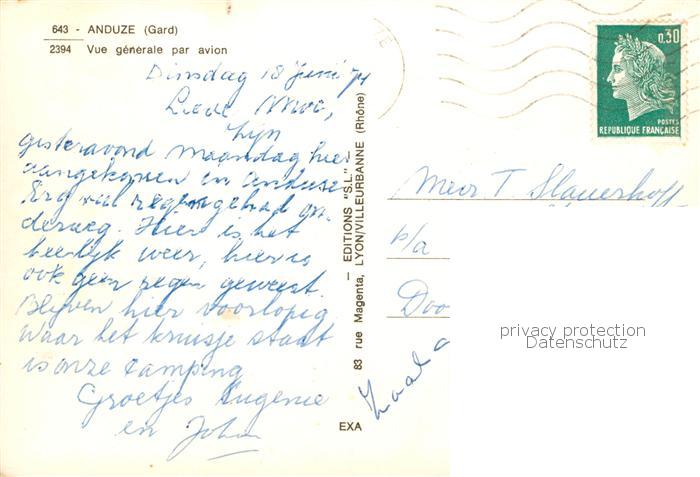 643 - ANDUZE (Gard)
2394 Vue générale par avion
Dinsdag 18 juni 74
Lieve Moe,
Zijn
gisteravond maandag hier
aangekomen in Anduze
Erg veel regen gehad on
derweg. Hier is het
heerlijk weer, hier is
ook geen regen geweest.
Blijven hier voorlopig
Waar het kruisje staat
is onze camping
Groetjes Eugenie
en John
EXA
83 rue Magenta, LYON/VILLEURBANNE (Rhône)
— EDITIONS "S.L." —
0,30
POSTES
REPUBLIQUE FRANÇAISE
T Slauerhoff
p/a
Doo
privacy protection
Datenschutz